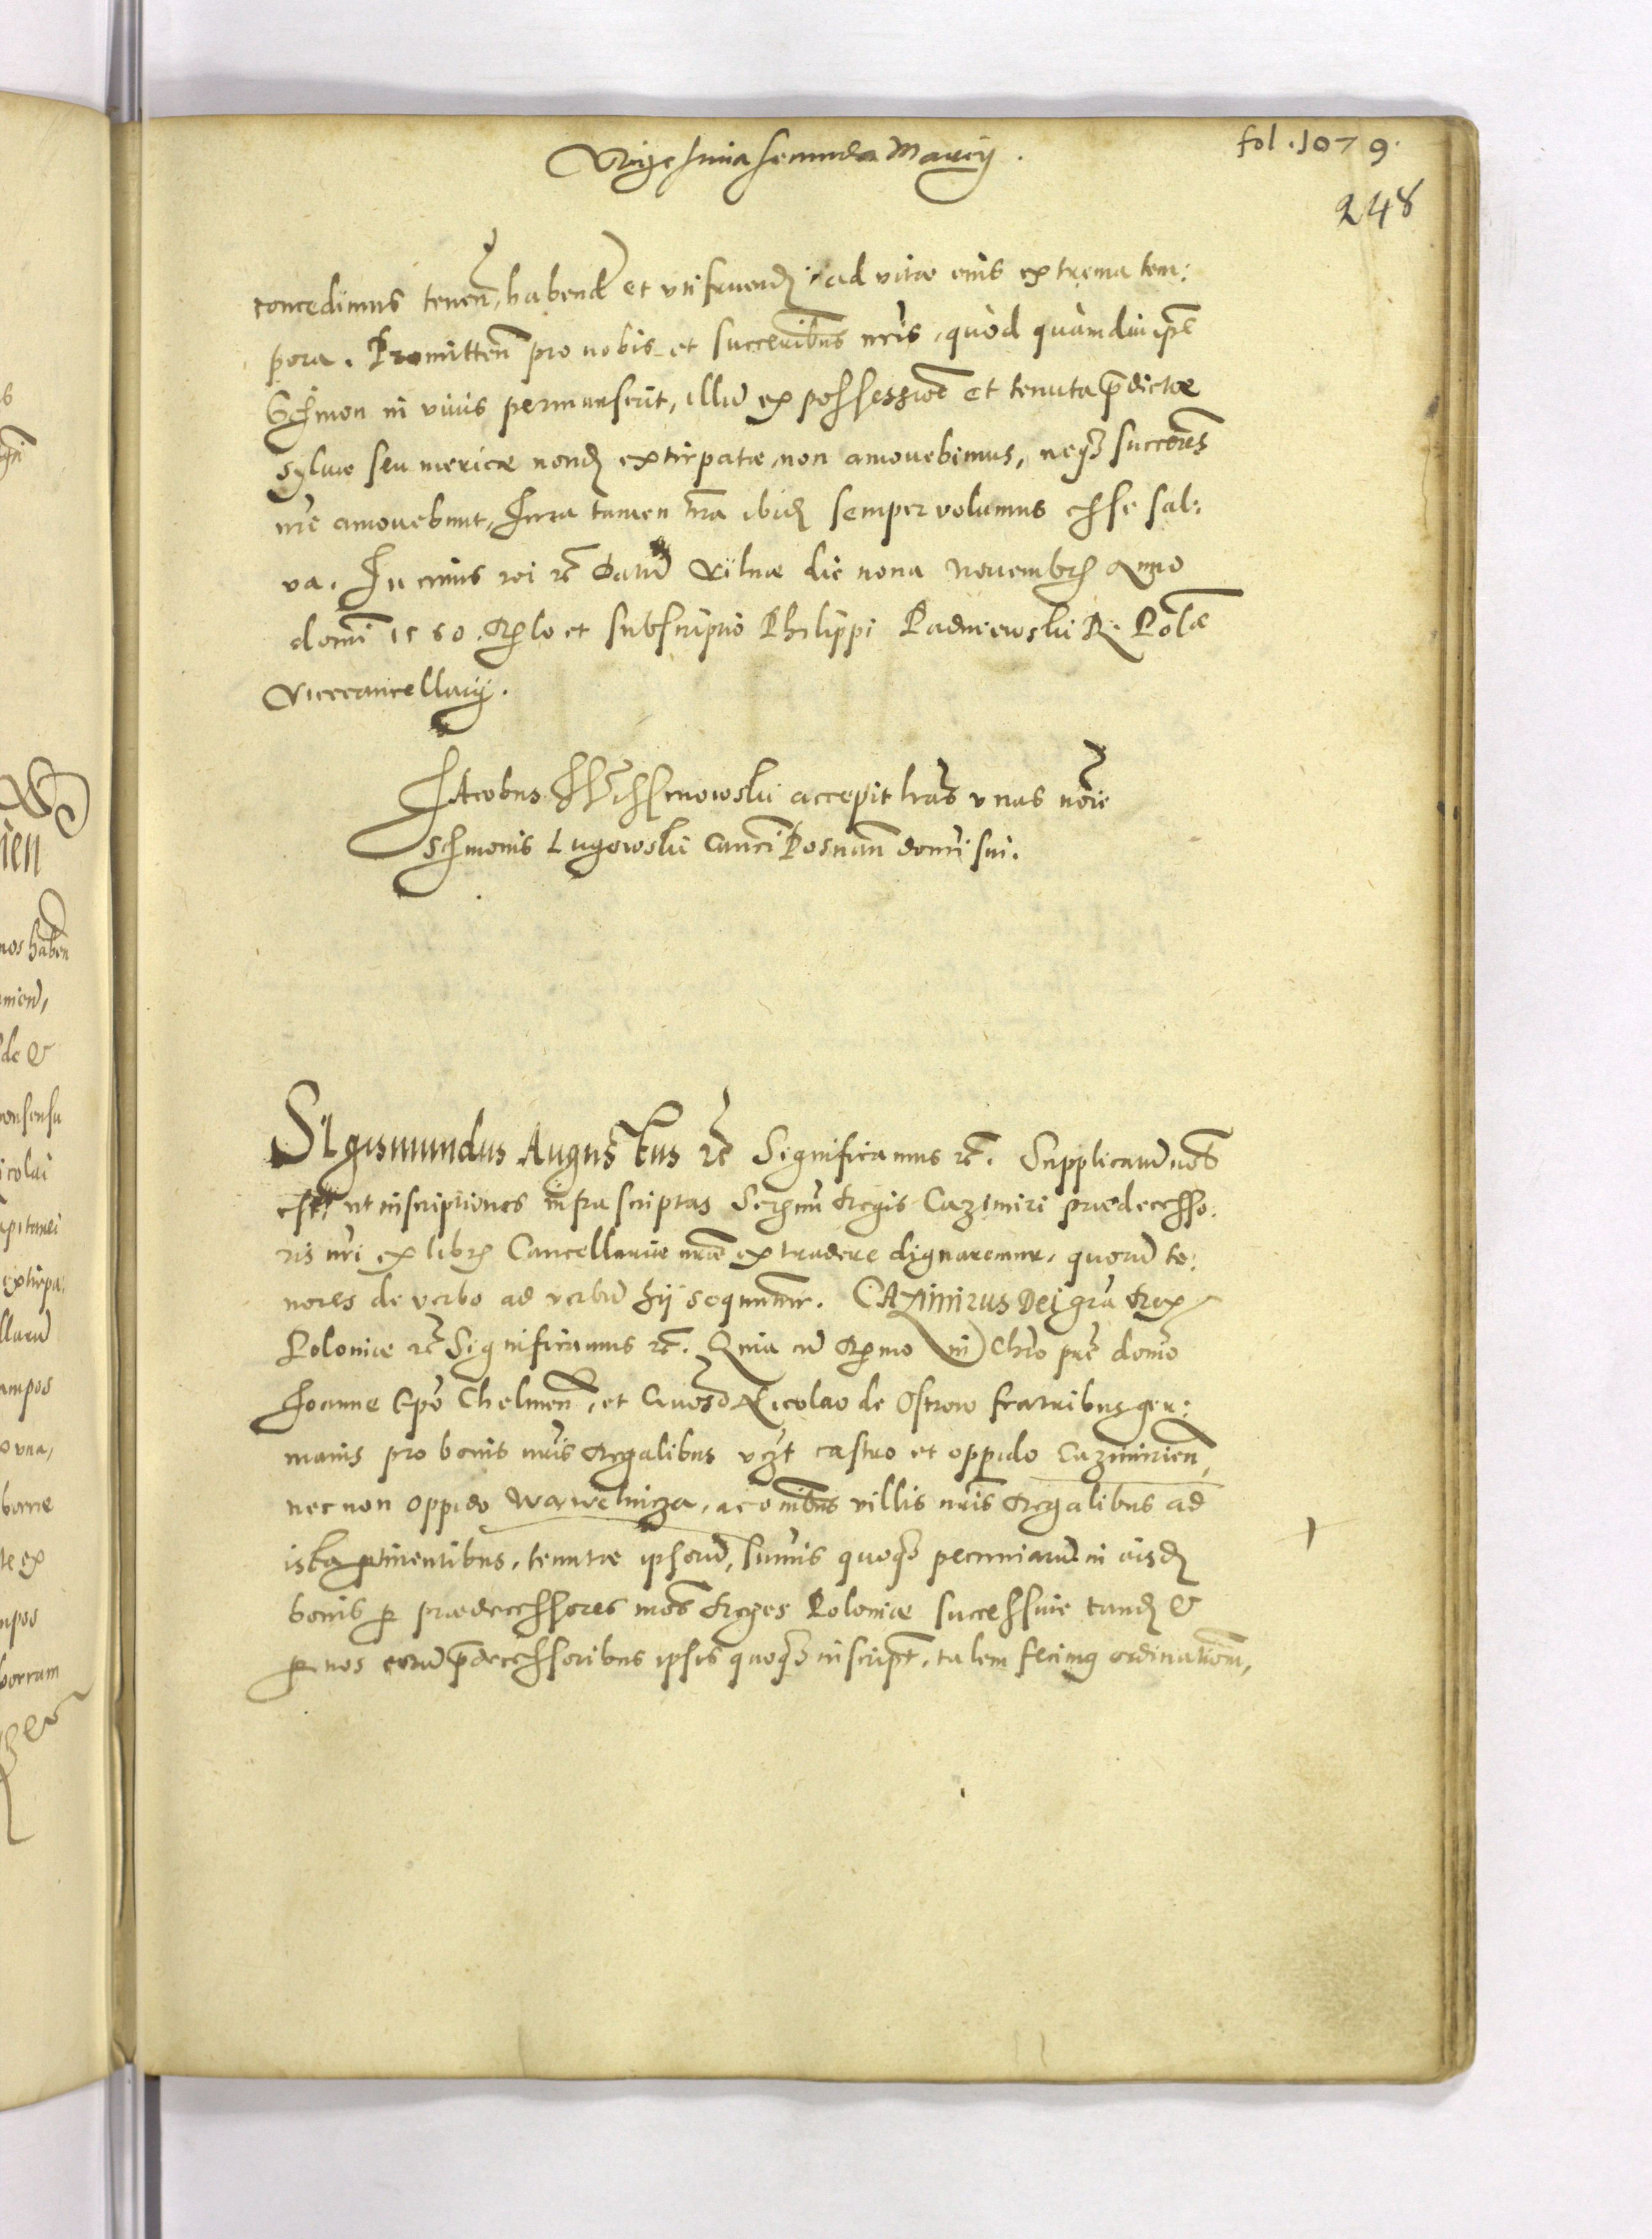 Vigesima secunda Marcij.
fol. 1079.
248
concedimus teneñ, habend et utifruend, ad vitae eius extrema tem:
pora. Promitteñ pro nobis et succeribus nris, quòd quàmdiu ipse
Schimon in vivis permanserit, illũ ex possessioẽ et tenuta pdictae
sylvae seu mericae nond extirpatae, non amovebimus, neqʒ succeres
nri amovebunt, Iura tamen nra ibid semper volumus esse sal:
va. In cuius rei rc Datũ Vilnae die nona Novembr Anno
domi 1560. Rlo et subscriptio Philippi Padniewski R. Polae
Vicecancellarij.
Iacobus accepit lras unas noie
Schimonis Lugowski Canci Posnañ domi sui.
SIgismundus Augustus rc Significamus rc. Supplicatũ nob
est, ut inscriptiones infra scriptas Sermi Regis Cazimiri praedecesso.
ris nri ex libr Cancellariae nrae extradere dignaremur, quorũ te:
nores de verbo ad verbũ hij sequuntur. CAzimirus Dei gra Rex
Poloniae rc Significamus rc. Quia cũ Rmo in Chro pre domo
Ioanne Epo Chelmeñ, et Gnoso Nicolao de Ostrow fratribus ger:
manis pro bonis nris Regalibus vczt castro et oppido Cazimirieñ,
nec non oppido Wawelnicza, ac oibus villis nris Regalibus ad
ista ptinentibus, tenutae ipsorũ, sumis quoqʒ pecuniarũ in eisd
bonis p praedecessores nros Reges Poloniae successive tand &
p nos eorũ pdecessoribus ipsis quoqʒ inscript, talem fecimꝰ ordinationem,